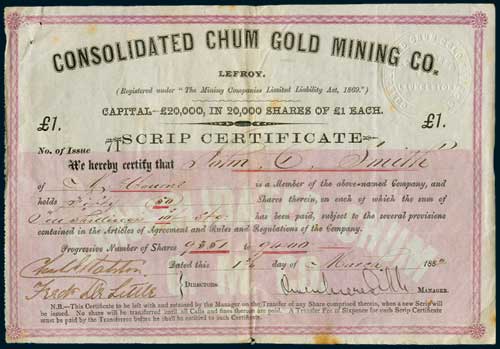 CONSOLIDATED CHUM GOLD MINING CO.
LEFROY.
(Registered under "The Mining Companies Limited Liability Act, 1869.")
CAPITAL—£20,000, IN 20,000 SHARES OF £1 EACH.
£1. £1.
SCRIP CERTIFICATE
No. of Issue 71
We hereby certify that John C. Smith
of Melbourne is a Member of the above-named Company, and
holds Fifty (50) Shares therein, on each of which the sum of
Ten Shillings has been paid, subject to the several provisions
contained in the Articles of Agreement and Rules and Regulations of the Company.
Progressive Number of Shares 9351 to 9400
Dated this day of March 188
Fredk De Little
DIRECTORS.
MANAGER.
N.B.—This Certificate to be left with and retained by the Manager on the Transfer of any Share comprised therein, when a new Scrip will
be issued. No share will be transferred until all Calls and fines thereon are paid. A Transfer Fee of Sixpence for each Scrip Certificate
must be paid by the Transferree before he shall be entitled to such Certificate.